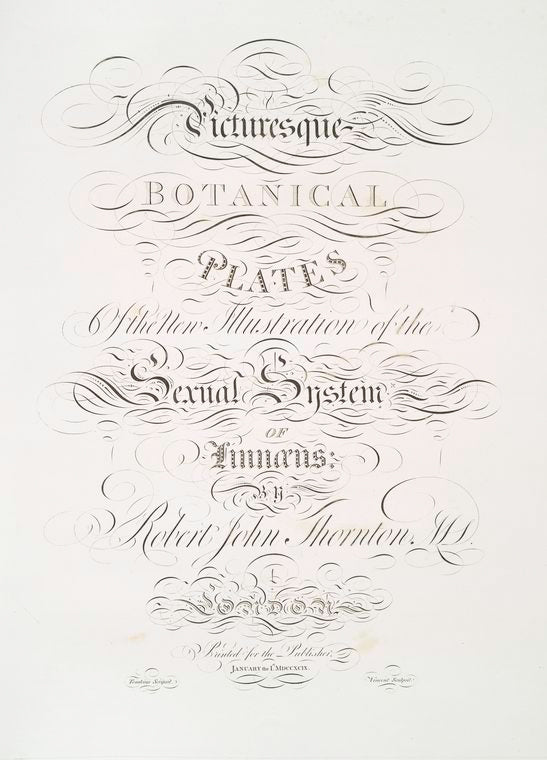 Picturesque
BOTANICAL
PLATES
Of the New Illustration of the
Sexual System
OF
Linnæus:
By
Robert John Thornton, M.D.
LONDON.
Printed for the Publisher,
JANUARY the 1st MDCCXCIX.
Tomkins Scripsit.
Vincent Sculpsit.